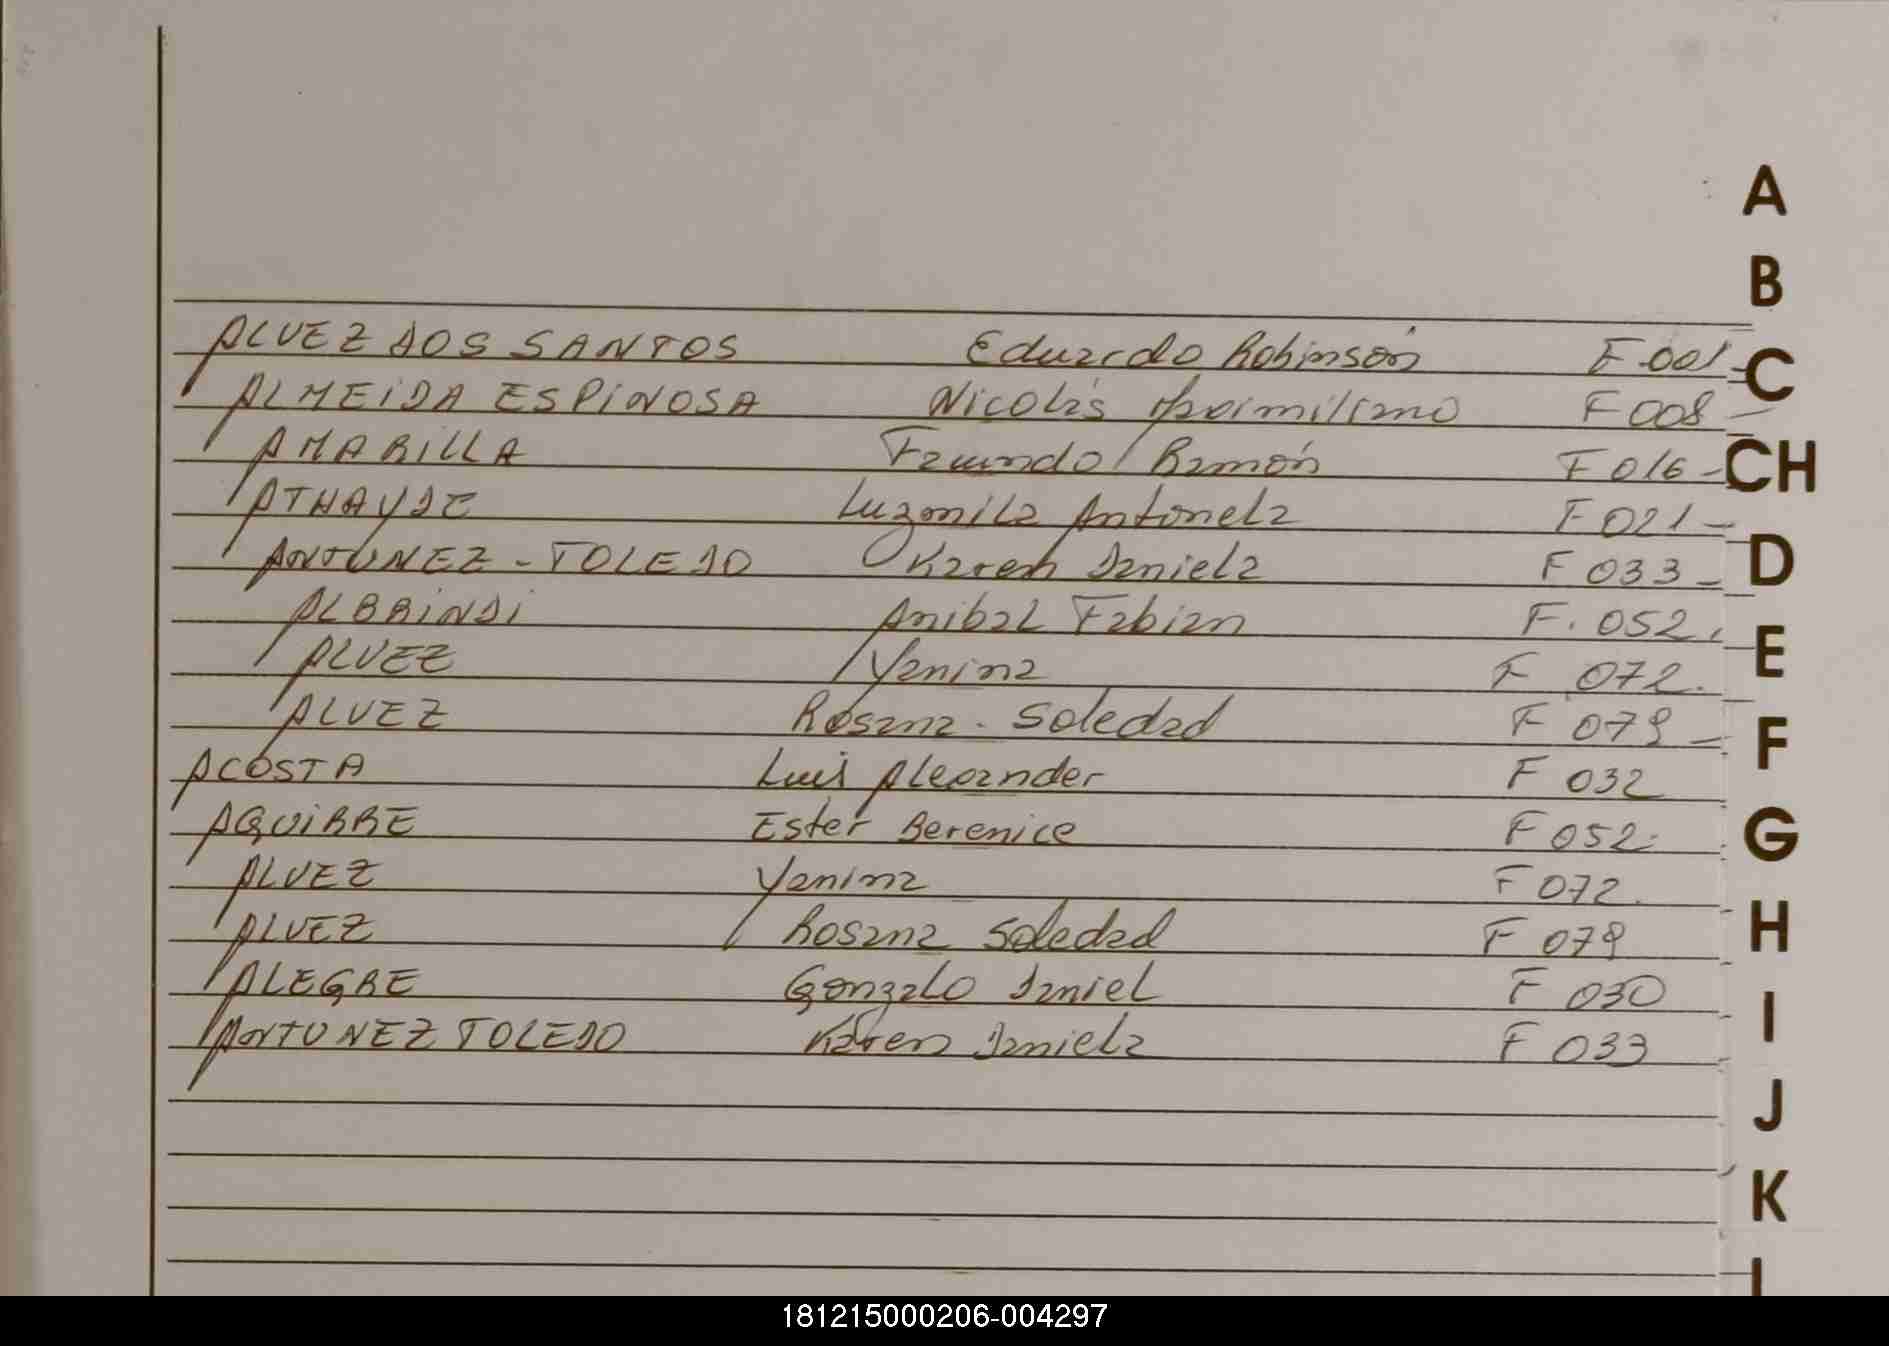 ALVEZ DOS SANTOS Eduardo Robinsón F 001 -
ALMEIDA ESPINOSA Nicolás Maximiliano F 008 -
AMARILLA Facundo Ramón F 016 -
ATHAYDE Luzmila Antonela F 021 -
ANTUNEZ - TOLEDO Karen Daniela F 033 -
ALBRINDI Anibal Fabian F. 052.
ALVEZ Yanina F 072.
ALVEZ Rosana - Soledad F 079 -
ACOSTA Luis Alexander F 032
AGUIRRE Ester Berenice F 052.
ALVEZ Yanina F 072.
ALVEZ Rosana Soledad F 079
ALEGRE Gonzalo Daniel F 030
ANTUNEZ TOLEDO Karen Daniela F 033
A
B
C
CH
D
E
F
G
H
I
J
K
L
181215000206-004297